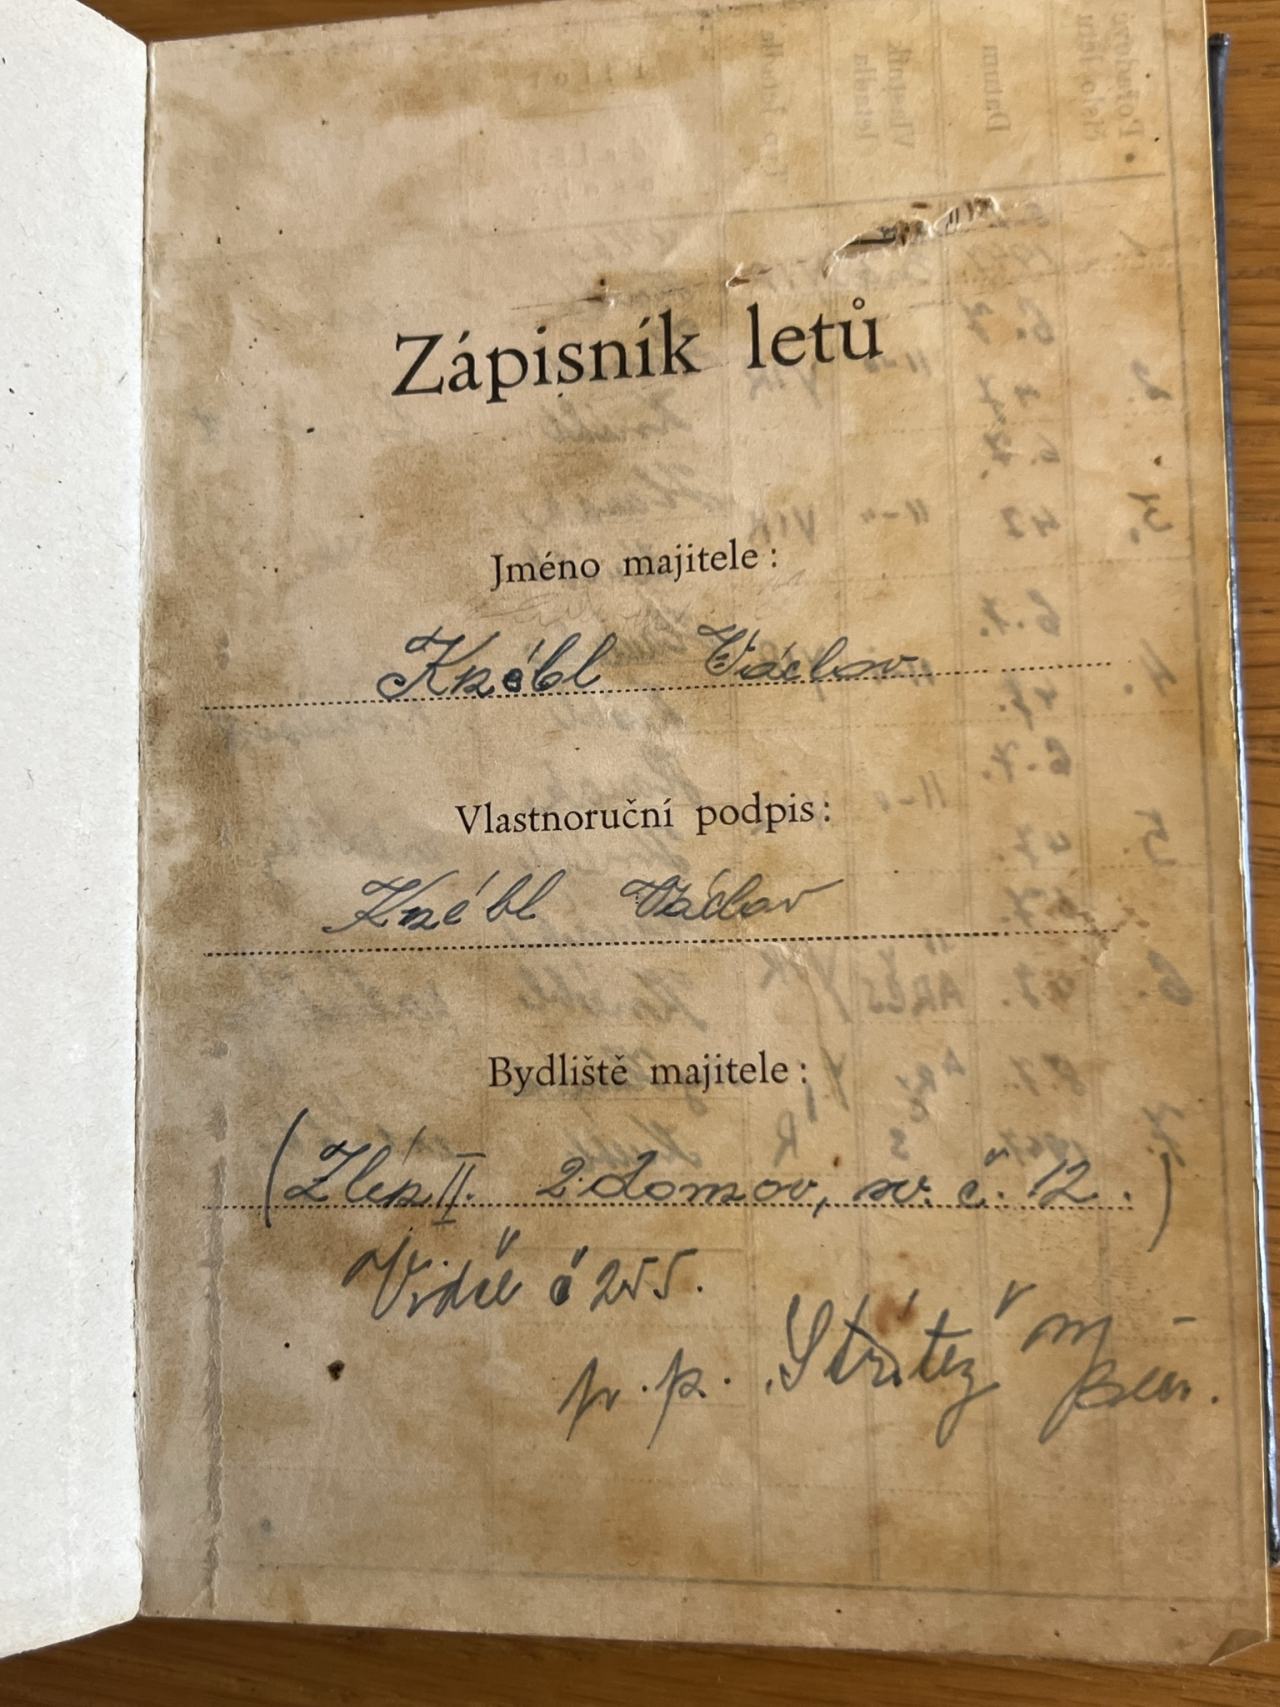 Zápisník letů
Jméno majitele:
Knébl Václav
Vlastnoruční podpis:
Knébl Václav
Bydliště majitele:
(Zlín II. 2. domov, sv. č. 12.)
Vidče č 255.
p. p. Střítež